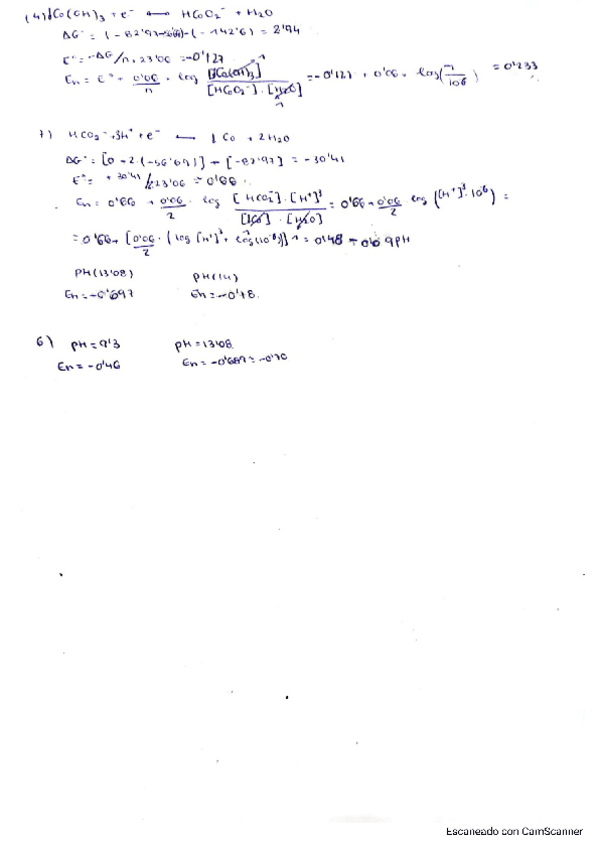 (4) ↓Co(OH)₃ + e⁻ ⟷ HCoO₂⁻ + H₂O
ΔG° = (-82'97-56'69)-(-142'6) = 2'94
E° = -ΔG/n·23'06 = -0'127
En = E° + 0'06/n · log [↓Co(OH)₃]/[HCoO₂⁻]·[H₂O] = -0'127 + 0'06 · log(1/10⁻⁶) = 0'233
7) HCO₂⁻ + 3H⁺ + e⁻ ⟷ ↓Co + 2H₂O
ΔG° = [0-2·(-56'69)] - [-82'97] = -30'41
E° = +30'41/2·23'06 = 0'66.
En = 0'66 + 0'06/2 · log [HCO₂⁻]·[H⁺]³/[↓Co]·[H₂O] = 0'66 + 0'06/2 log ([H⁺]³·10⁻⁶) =
= 0'66 + [0'06/2 · (log[H⁺]³ + log(10⁻⁶))] = 0'48 - 0'09pH
PH(13'08) PH(14)
En = -0'697 En = -0'78.
6) pH = 9'3 pH = 13'08
En = -0'46 En = -0'689 = -0'70
Escaneado con CamScanner